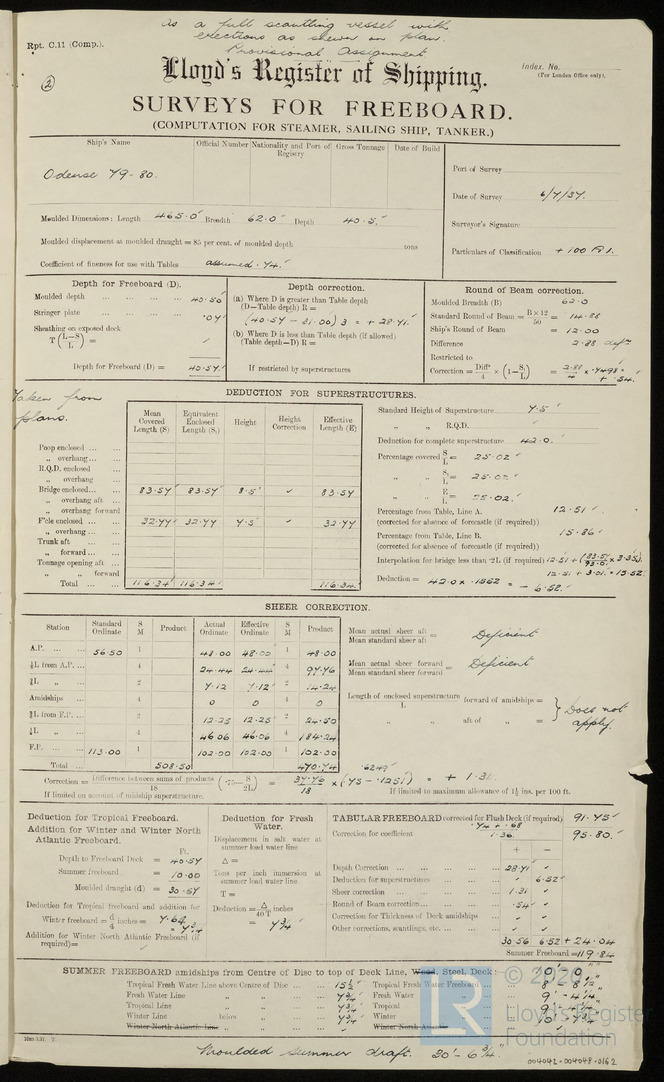 As a full scantling vessel with
erections as shewn on plan.
Provisional Assignment.
Rpt. C.11 (Comp.).
Index. No.
(For London Office only).
2
Lloyd's Register of Shipping.
SURVEYS FOR FREEBOARD.
(COMPUTATION FOR STEAMER, SAILING SHIP, TANKER.)
Ship's Name Official Number Nationality and Port of Registry Gross Tonnage Date of Build
Odense 79-80.
Port of Survey
Date of Survey 6/7/37.
Surveyor's Signature
Particulars of Classification +100 A1.
Moulded Dimensions: Length 465.0' Breadth 62.0' Depth 40.5'
Moulded displacement at moulded draught = 85 per cent. of moulded depth tons
Coefficient of fineness for use with Tables assumed .74.
Depth for Freeboard (D).
Moulded depth 40.50
Stringer plate .04
Sheathing on exposed deck
T (L-S/L) =
Depth for Freeboard (D) = 40.54
Depth correction.
(a) Where D is greater than Table depth
(D—Table depth) R =
(40.54 - 31.00) 3 = + 28.71
(b) Where D is less than Table depth (if allowed)
(Table depth—D) R =
If restricted by superstructures
Round of Beam correction.
Moulded Breadth (B) 62.0
Standard Round of Beam = B × 12/50 = 14.88
Ship's Round of Beam = 12.00
Difference 2.88
Restricted to
Correction = Diff°/4 × (1 - S₁/L) = 2.88/4 × .7498 =
+ .54
Taken from
plans.
DEDUCTION FOR SUPERSTRUCTURES.
Mean Covered Length (S) Equivalent Enclosed Length (S₁) Height Height Correction Effective Length (E)
Poop enclosed
„ overhang
R.Q.D. enclosed
„ overhang
Bridge enclosed 83.57 83.57 8.5' 83.57
„ overhang aft
„ overhang forward
F'cle enclosed 32.77 32.77 7.5' 32.77
„ overhang
Trunk aft
„ forward
Tonnage opening aft
„ „ forward
Total 116.34 116.34 116.34
Standard Height of Superstructure 7.5'
„ „ R.Q.D.
Deduction for complete superstructure 42.0
Percentage covered S/L = 25.02
„ „ S₁/L = 25.02
„ „ E/L = 25.02
Percentage from Table, Line A. 12.51
(corrected for absence of forecastle (if required))
Percentage from Table, Line B. 15.86
(corrected for absence of forecastle (if required))
Interpolation for bridge less than ·2L (if required) 12.51 + (83.57/93.0 × 3.35)
12.51 + 3.01 = 15.52
Deduction = 42.0 × .1552 = - 6.52
SHEER CORRECTION.
Station Standard Ordinate S M Product Actual Ordinate Effective Ordinate S M Product
A.P. 56.50 1 48.00 48.00 1 48.00
⅙L from A.P. 4 24.44 24.44 4 97.76
⅓L „ 2 7.12 7.12 2 14.24
Amidships 4 0 0 4 0
⅓L from F.P. 2 12.25 12.25 2 24.50
⅙L „ 4 46.06 46.06 4 184.24
F.P. 113.00 1 102.00 102.00 1 102.00
Total 508.50 470.74
Mean actual sheer aft / Mean standard sheer aft = Deficient
Mean actual sheer forward / Mean standard sheer forward = Deficient
Length of enclosed superstructure / L forward of amidships =
„ „ aft of „ =
Does not
apply.
.6249
Correction = Difference between sums of products/18 (·75 - S/2L) = 37.76/18 × (.75 - .1251) = + 1.31
If limited on account of midship superstructure. If limited to maximum allowance of 1½ ins. per 100 ft.
Deduction for Tropical Freeboard.
Addition for Winter and Winter North Atlantic Freeboard.
Ft.
Depth to Freeboard Deck = 40.54
Summer freeboard = 10.00
Moulded draught (d) = 30.54
Deduction for Tropical freeboard and addition for
Winter freeboard = d/4 inches = 7.64
= 7¾"
Addition for Winter North Atlantic Freeboard (if required) =
Deduction for Fresh Water.
Displacement in salt water at summer load water line
Δ =
Tons per inch immersion at summer load water line
T =
Deduction = Δ/40T inches
= 7¾"
TABULAR FREEBOARD corrected for Flush Deck (if required) 91.75
.74 + .68
Correction for coefficient 1.36 95.80
+ −
Depth Correction 28.71
Deduction for superstructures 6.52
Sheer correction 1.31
Round of Beam correction .54
Correction for Thickness of Deck amidships
Other corrections, scantlings, etc.
30.56 6.52 + 24.04
Summer Freeboard = 119.84
SUMMER FREEBOARD amidships from Centre of Disc to top of Deck Line, Wood, Steel, Deck:
Tropical Fresh Water Line above Centre of Disc 15½" Tropical Fresh Water Freeboard 8'
Fresh Water Line „ „ 7¾ Fresh Water „ 9'
Tropical Line „ „ 7¾ Tropical „ 9' - 4¼"
Winter Line below „ 7¾ Winter „ 10'
Winter North Atlantic Line „ „ Winter North Atlantic „
Moulded summer draft. 30' - 6¾"
© 2020
LR
Lloyd's Register
Foundation
004042-004048-0162